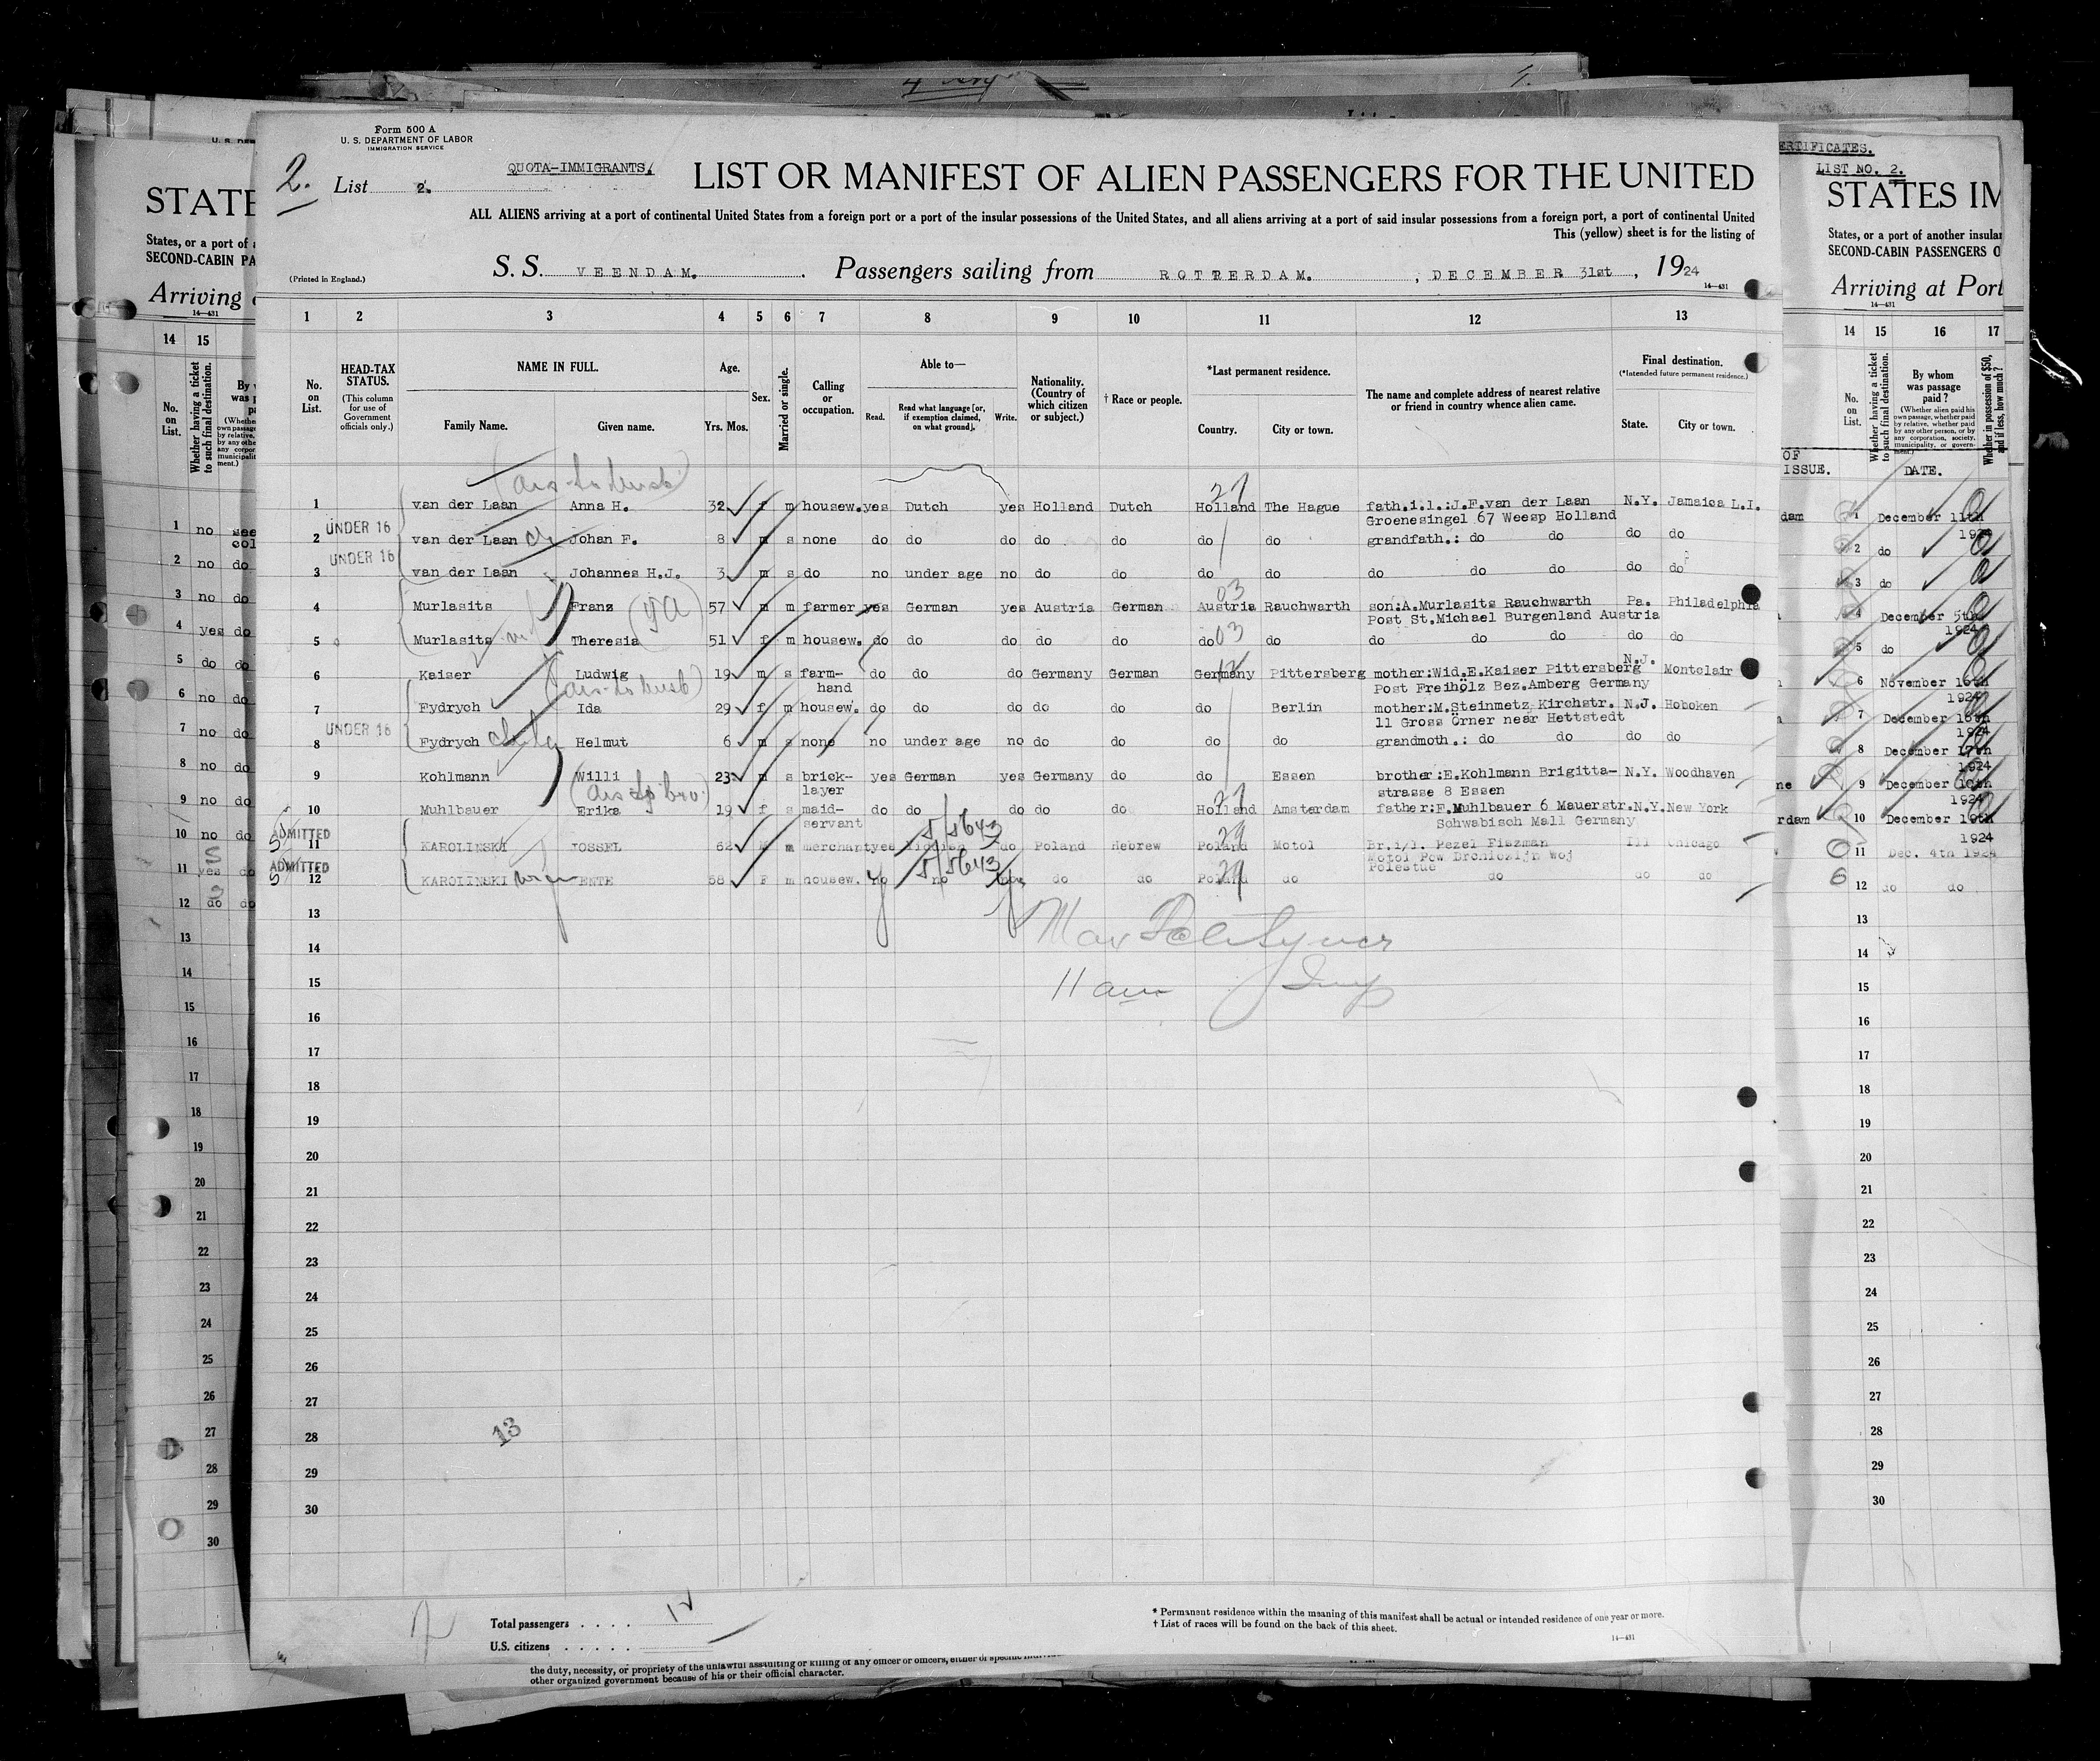 Form 500 A
U. S. DEPARTMENT OF LABOR
IMMIGRATION SERVICE
2.
List 2.
QUOTA-IMMIGRANTS.
LIST OR MANIFEST OF ALIEN PASSENGERS FOR THE UNITED
ALL ALIENS arriving at a port of continental United States from a foreign port or a port of the insular possessions of the United States, and all aliens arriving at a port of said insular possessions from a foreign port, a port of continental United
This (yellow) sheet is for the listing of
(Printed in England.)
S. S. VEENDAM. Passengers sailing from ROTTERDAM. , DECEMBER 31st , 1924
14—431
1 2 3 4 5 6 7 8 9 10 11 12 13
No. on List.
HEAD-TAX STATUS.
(This column for use of Government officials only.)
NAME IN FULL.
Family Name. Given name.
Age.
Yrs. Mos.
Sex.
Married or single.
Calling or occupation.
Able to—
Read. Read what language [or, if exemption claimed, on what ground]. Write.
Nationality. (Country of which citizen or subject.)
† Race or people.
*Last permanent residence.
Country. City or town.
The name and complete address of nearest relative or friend in country whence alien came.
Final destination.
(*Intended future permanent residence.)
State. City or town.
1 van der Laan Anna H. 32 f m housew. yes Dutch yes Holland Dutch Holland The Hague fath.i.l.:J.F.van der Laan N.Y. Jamaica L.I.
Groenesingel 67 Weesp Holland
UNDER 16
2 van der Laan Johan F. 8 m s none do do do do do do do grandfath.: do do do do
UNDER 16
3 van der Laan Johannes H.J. 3 m s do no under age no do do do do do do do do do
4 Murlasits Franz 57 m m farmer yes German yes Austria German Austria Rauchwarth son:A.Murlasits Rauchwarth Pa. Philadelphia
Post St.Michael Burgenland Austria
5 Murlasits Theresia 51 f m housew. do do do do do do do do do do do do
6 Kaiser Ludwig 19 m s farm- do do do Germany German Germany Pittersberg mother:Wid.E.Kaiser Pittersberg N.J. Montclair
hand Post Freihölz Bez.Amberg Germany
7 Fydrych Ida 29 f m housew. do do do do do do Berlin mother:M.Steinmetz Kirchstr. N.J. Hoboken
11 Gross Örner near Hettstedt
UNDER 16
8 Fydrych Helmut 6 m s none no under age no do do do do grandmoth.: do do do do
9 Kohlmann Willi 23 m s brick- yes German yes Germany do do Essen brother:E.Kohlmann Brigitta- N.Y. Woodhaven
layer strasse 8 Essen
10 Muhlbauer Erika 19 f s maid- do do do do do Holland Amsterdam father:F.Muhlbauer 6 Mauerstr. N.Y. New York
servant Schwabisch Mall Germany
ADMITTED
11 KAROLINSKI JOSSEL 62 m merchant yes Yiddish do Poland Hebrew Poland Motol Br.i/l. Pezel Fiszman Ill Chicago
ADMITTED
12 KAROLINSKI ENTE 58 F m housew. no no do do Poland do do do do
5/5643
5/5643
11 am
13
14
15
16
17
18
19
20
21
22
23
24
25
26
27
28
29
30
13
Total passengers . . . . 12
U.S. citizens . . . . .
* Permanent residence within the meaning of this manifest shall be actual or intended residence of one year or more.
† List of races will be found on the back of this sheet.
14—431
the duty, necessity, or propriety of the unlawful assaulting or killing of any officer or officers, either of specific
other organized government because of his or their official character.
STATE
States, or a port of
SECOND-CABIN PA
Arriving
14—431
14 15
No. on List.
Whether having a ticket to such final destination.
1 no see
2 no do
3 no do
4 yes do
5 do do
6 no do
7 no do
8 no do
9 no do
10 no do
11 yes do
12 do do
13
14
15
16
17
18
19
20
21
22
23
24
25
26
27
28
29
30
ERTIFICATES.
LIST NO. 2.
STATES IM
States, or a port of another insular
SECOND-CABIN PASSENGERS O
Arriving at Port
14—431
14 15 16 17
No. on List.
Whether having a ticket to such final destination.
By whom was passage paid?
(Whether alien paid his own passage, whether paid by relative, whether paid by any other person, or by any corporation, society, municipality, or government.)
Whether in possession of $50, and if less, how much?
OF
ISSUE. DATE.
1 December 11th
1924
2 do
3 do
4 December 5th
1924
5 do
6 November 16th
1924
7 December 16th
1924
8 December 17th
1924
9 December 10th
1924
10 December 10th
1924
11 Dec. 4th 1924
12 do do
13
14
15
16
17
18
19
20
21
22
23
24
25
26
27
28
29
30